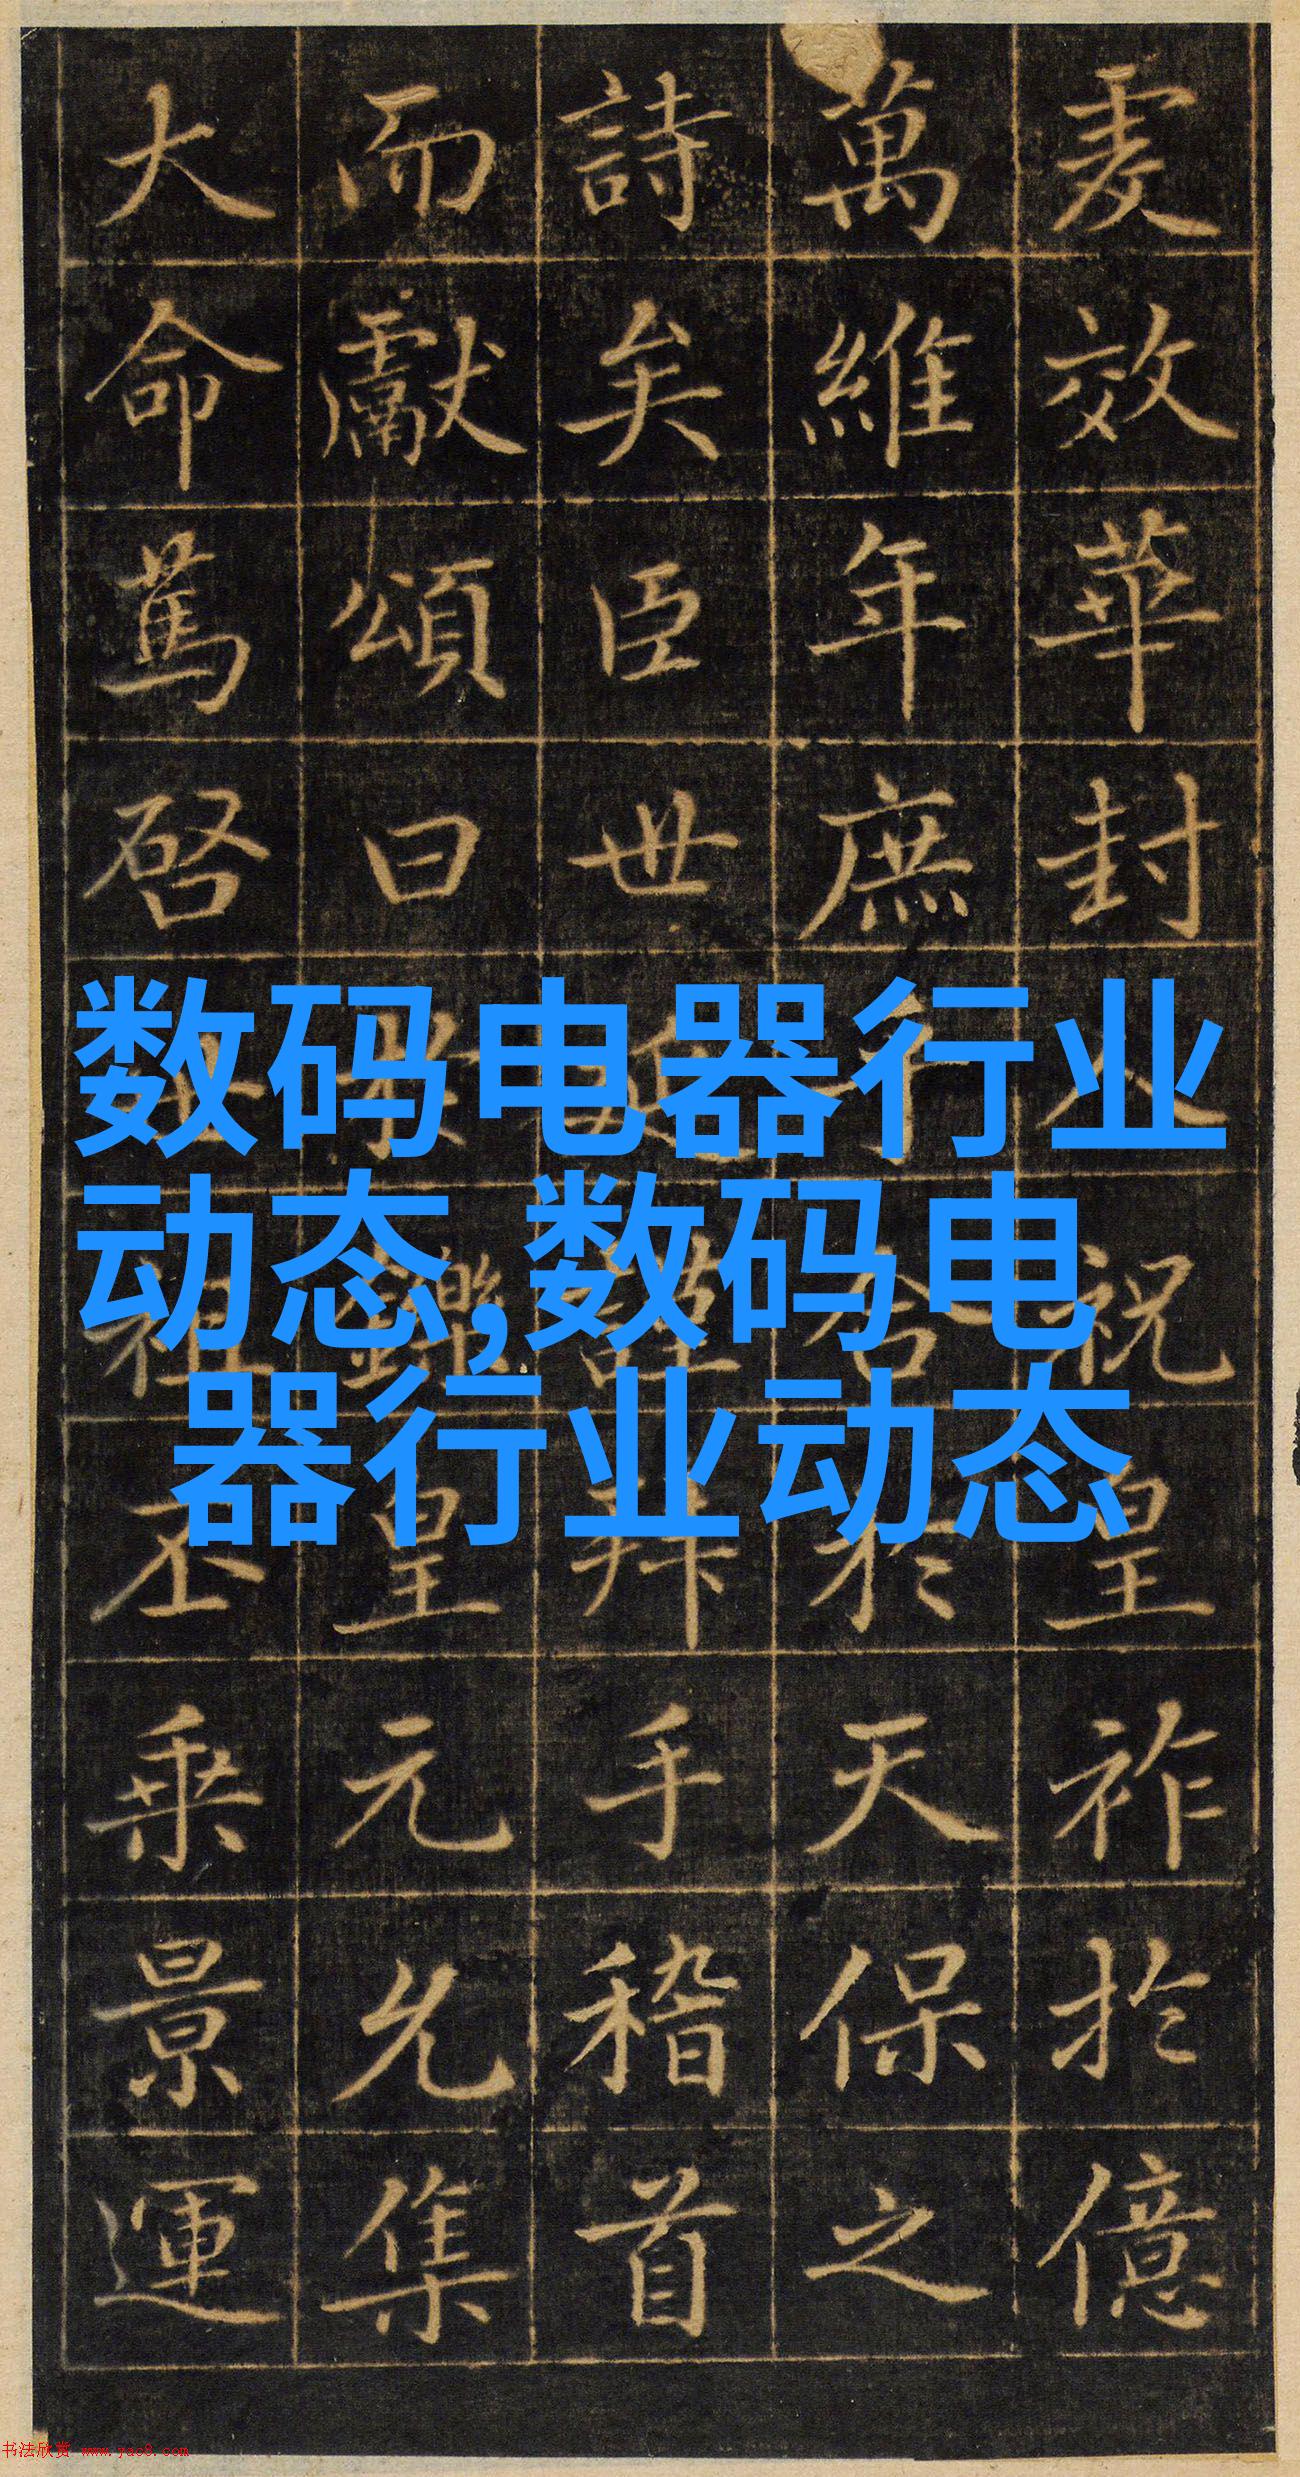 爰效華封人祝皇祚於億
萬維年庶合於天保之
詩矣臣世延謹拜手稽首
而獻頌曰鑠皇元允集
大命篤啓祖丕乘景運
数码电器行业
动态,数码电
器行业动态
书法欣赏 www.yac8.com